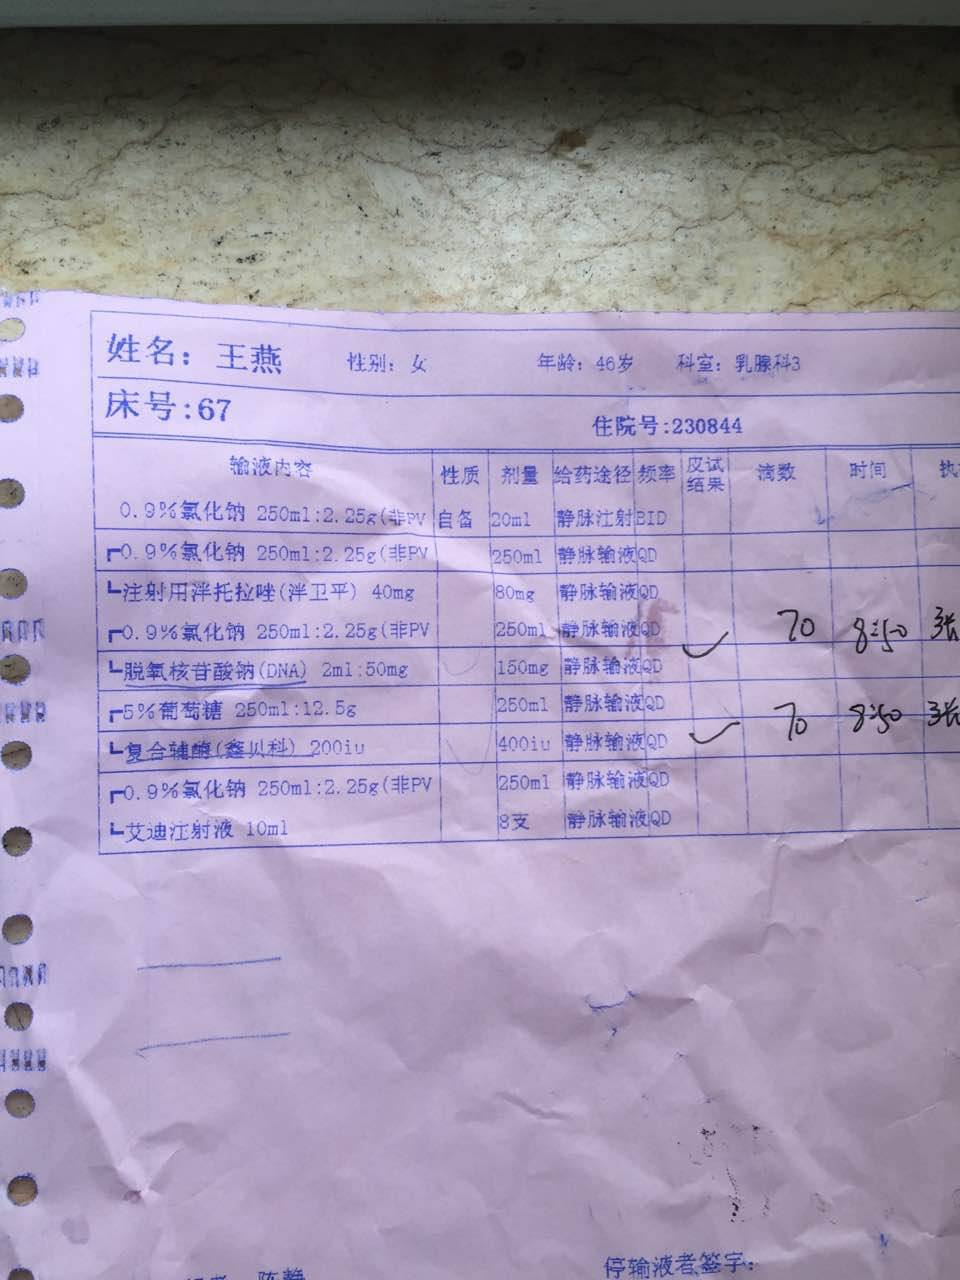 姓名：王燕 性别：女 年龄：46岁 科室：乳腺科3
床号:67 住院号:230844
输液内容 性质 剂量 给药途径 频率 皮试结果 滴数 时间 执
0.9%氯化钠 250ml:2.25g(非PV 自备 20ml 静脉注射 BID
┏0.9%氯化钠 250ml:2.25g(非PV 250ml 静脉输液 QD
┗注射用泮托拉唑(泮卫平) 40mg 80mg 静脉输液 QD
┏0.9%氯化钠 250ml:2.25g(非PV 250ml 静脉输液 QD 70 8:50 张
┗脱氧核苷酸钠(DNA) 2ml:50mg 150mg 静脉输液 QD
┏5%葡萄糖 250ml:12.5g 250ml 静脉输液 QD 70 8:50 张
┗复合辅酶(鑫贝科) 200iu 400iu 静脉输液 QD
┏0.9%氯化钠 250ml:2.25g(非PV 250ml 静脉输液 QD
┗艾迪注射液 10ml 8支 静脉输液 QD
陈静 停输液者签字：